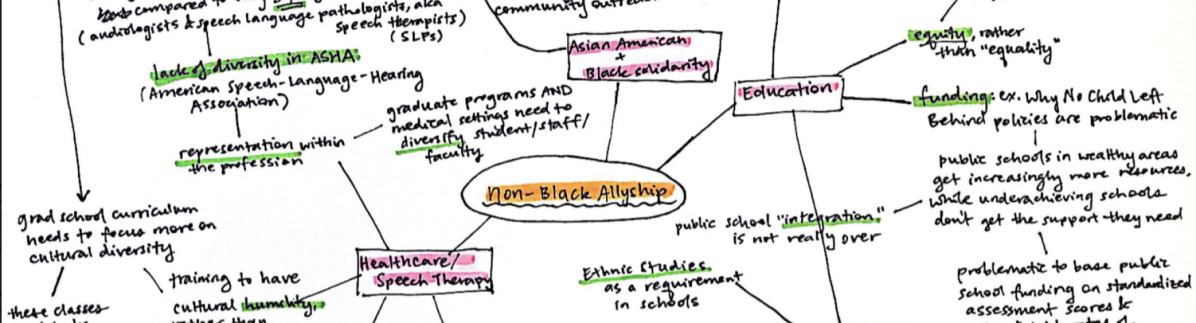 compared to
(audiologists & speech language pathologists, aka
speech therapists)
(SLPs)
lack of diversity in ASHA:
(American Speech-Language-Hearing
Association)
representation within
the profession
graduate programs AND
medical settings need to
diversify student/staff/
faculty
grad school curriculum
needs to focus more on
cultural diversity
these classes
training to have
cultural humility,
Healthcare/
Speech Therapy
community
Asian American
+
Black solidarity
Non-Black Allyship
Education
equity, rather
than "equality"
funding: ex. Why No Child Left
Behind policies are problematic
public schools in wealthy areas
get increasingly more resources,
while underachieving schools
don't get the support they need
public school "integration"
is not really over
Ethnic Studies
as a requirement
in schools
problematic to base public
school funding on standardized
assessment scores &